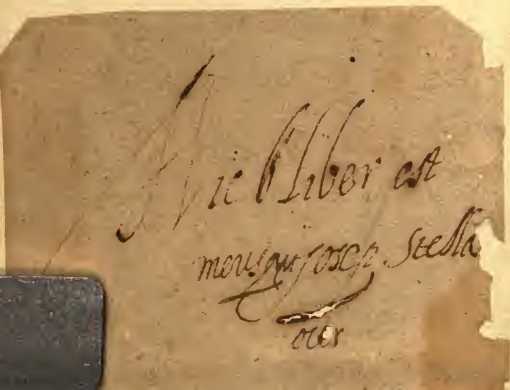 Hic l Liber est
meus qui Josep Stella